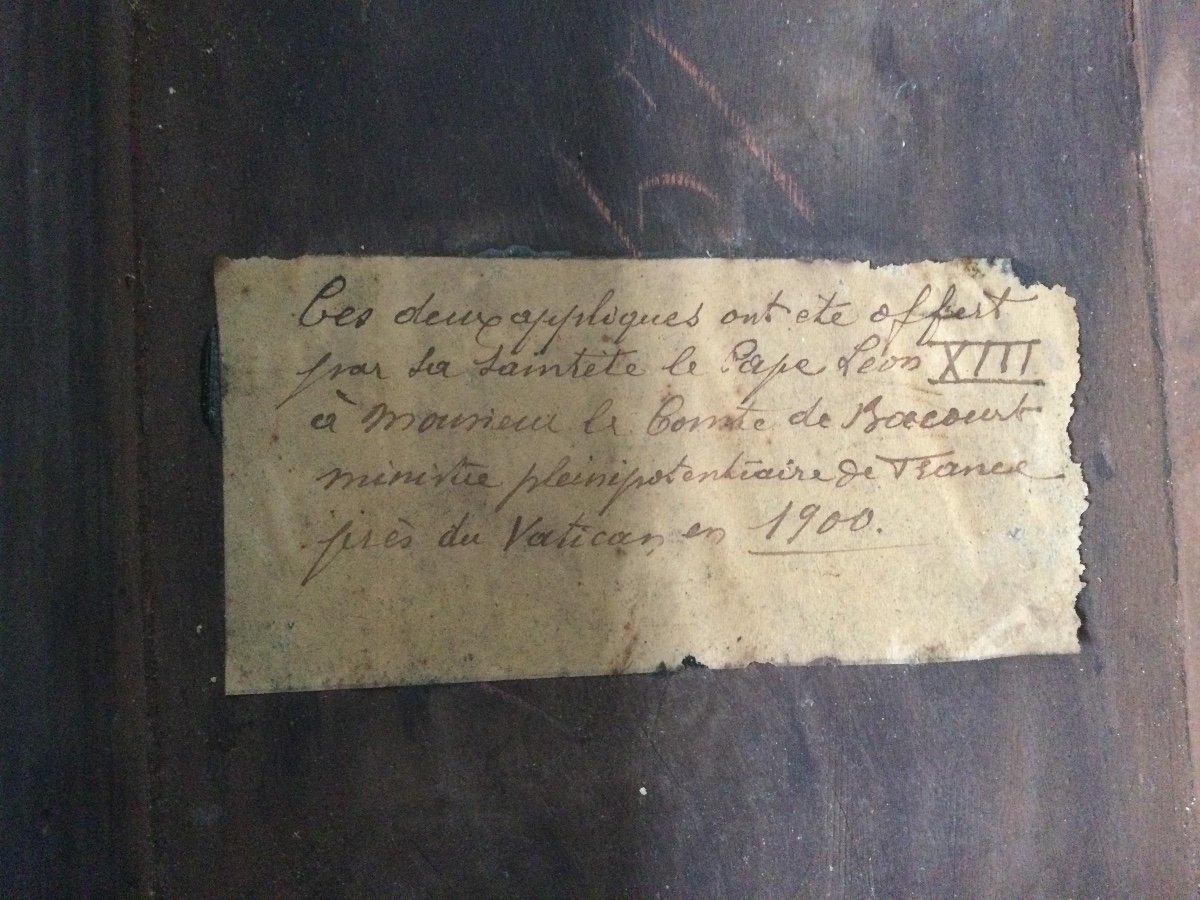 Ces deux appliques ont été offert
par sa sainteté le Pape Léon XIII
à Monsieur le Comte de Bacourt
ministre pleinipotentiaire de France
près du Vatican en 1900.